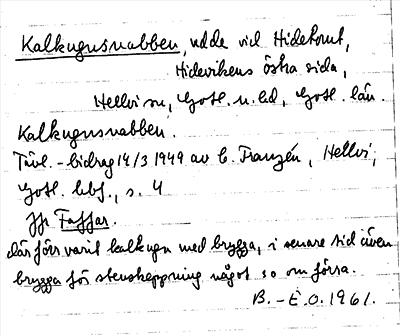 Kalkugnsnabben, udde vid Hidehomt,
Hidevikens östra sida,
Hellvi sn, Gotl. n. hd, Gotl. län.
Kalkugnsnabben.
Tävl.-bidrag 14/3 1949 av C. Franzén, Hellvi,
Gotl. hbf., s. 4
Jfr Faffar.
där förr varit kalkugn med brygga, i senare tid även
brygga för stenskeppning något so om förra.
B.-E.O. 1961.